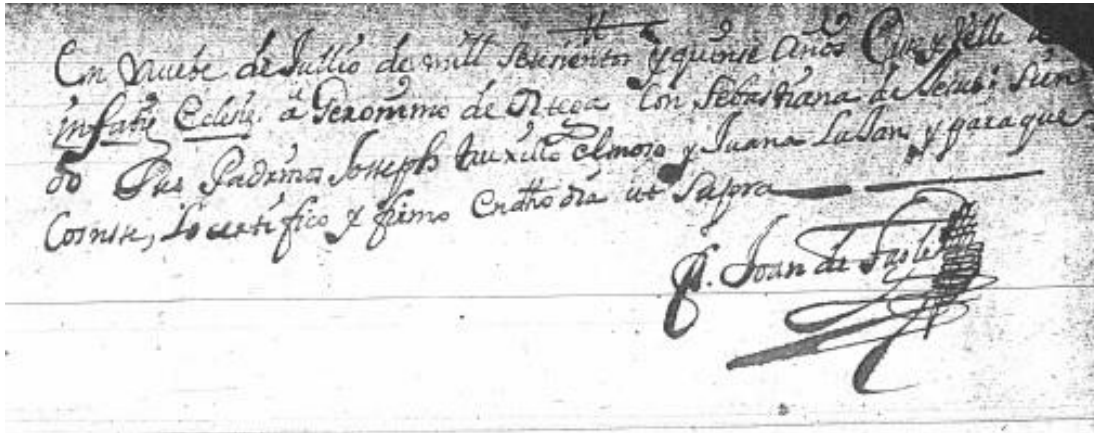 En Nuebe de Jullio de mill setesientos y quinse Años Case y Velle
infatie Eclesie. a Geronimo de Ortega Con Sebastiana de Jesus: Sien
do Sus Padrinos Joseph truxillo el moso y Juana Lujan, y para que
Conste, lo certifico y firmo en dho dia ut Supra
fr. Joan de